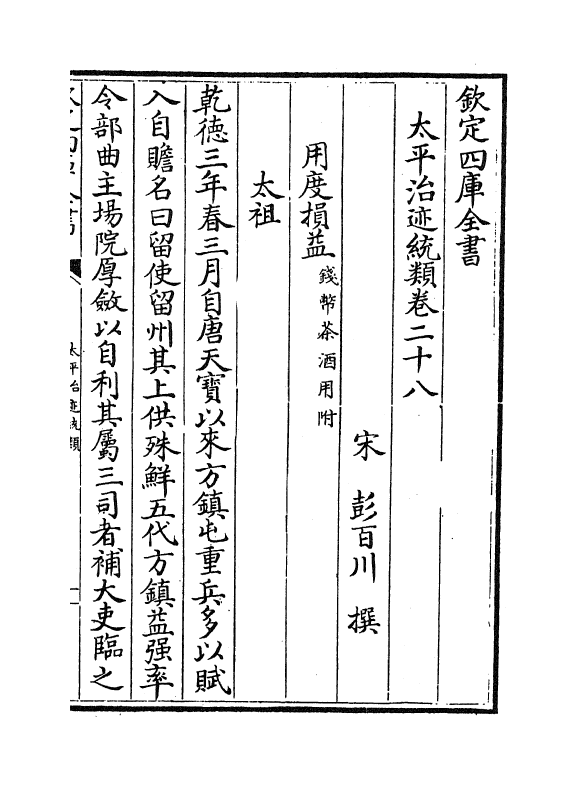 欽定四庫全書
太平治迹統類卷二十八
宋 彭百川 撰
用度損益錢幣茶酒用附
太祖
乾德三年春三月自唐天寶以來方鎮屯重兵多以賦
入自贍名曰留使留州其上供殊鮮五代方鎮益强率
令部曲主場院厚斂以自利其屬三司者補大吏臨之
太平治迹統類